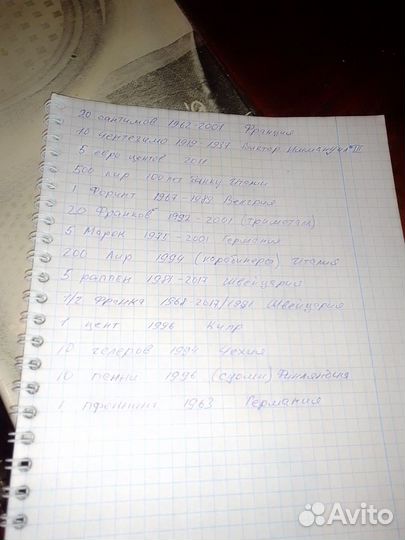 20 сантимов 1962-2001 Франция
10 чентезимо 1919-1937 Виктор Иммануил III
5 евро центов 2011
500 лир 100 лет банку Италии
1 Форинт 1967-1989 Венгрия
20 Франков 1992-2001 (триметалл)
5 Марок 1975-2001 Германия
200 Лир 1994 (карабинеры) Италия
5 раппен 1981-2017 Швейцария
1/2 Франка 1968-2017/1981 Швейцария
1 цент 1996 Кипр
10 гелеров 1994 Чехия
10 пенни 1996 (суоми) Финляндия
1 пфенниг 1963 Германия
Avito